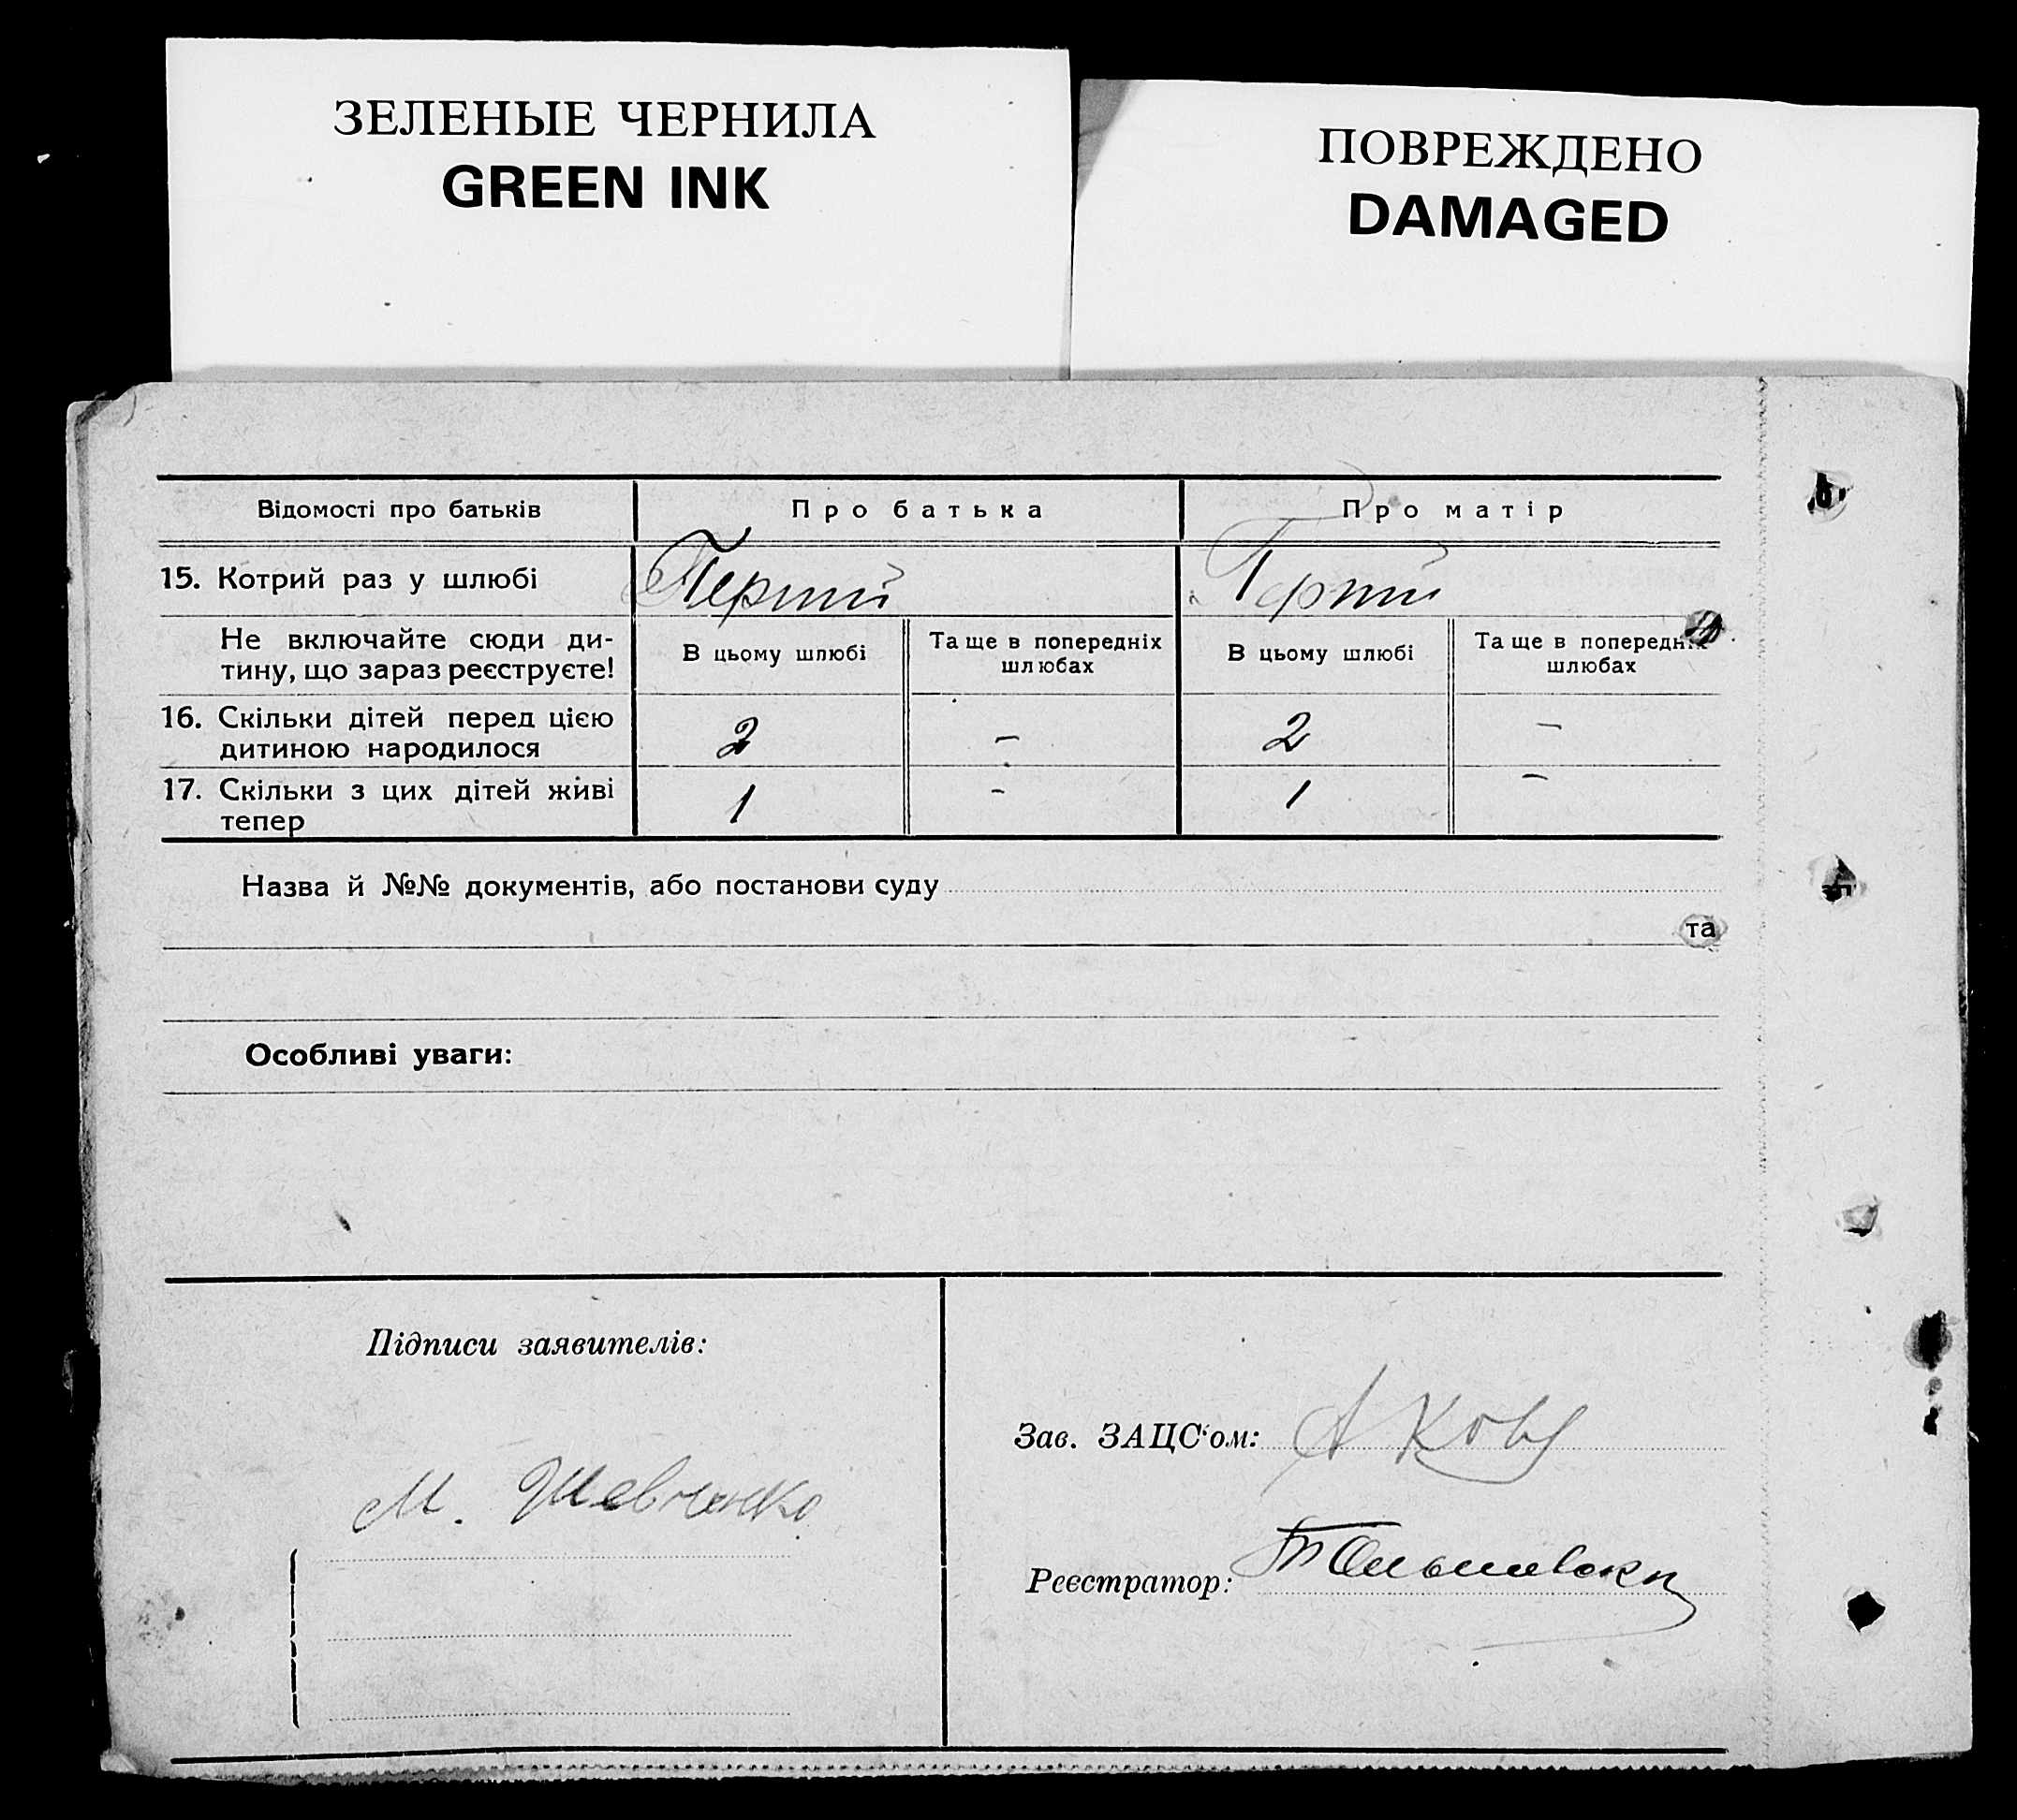 ЗЕЛЕНЫЕ ЧЕРНИЛА
GREEN INK
ПОВРЕЖДЕНО
DAMAGED
Відомості про батьків
Про батька
Про матір
15. Котрий раз у шлюбі
Перший
Перший
Не включайте сюди ди-
тину, що зараз реєструєте!
В цьому шлюбі
Та ще в попередніх
шлюбах
В цьому шлюбі
Та ще в попередніх
шлюбах
16. Скільки дітей перед цією
дитиною народилося
2
–
2
–
17. Скільки з цих дітей живі
тепер
1
–
1
–
Назва й №№ документів, або постанови суду
та
Особливі уваги:
Підписи заявителів:
М. Шевченко
Зав. ЗАЦС'ом:
Реєстратор: